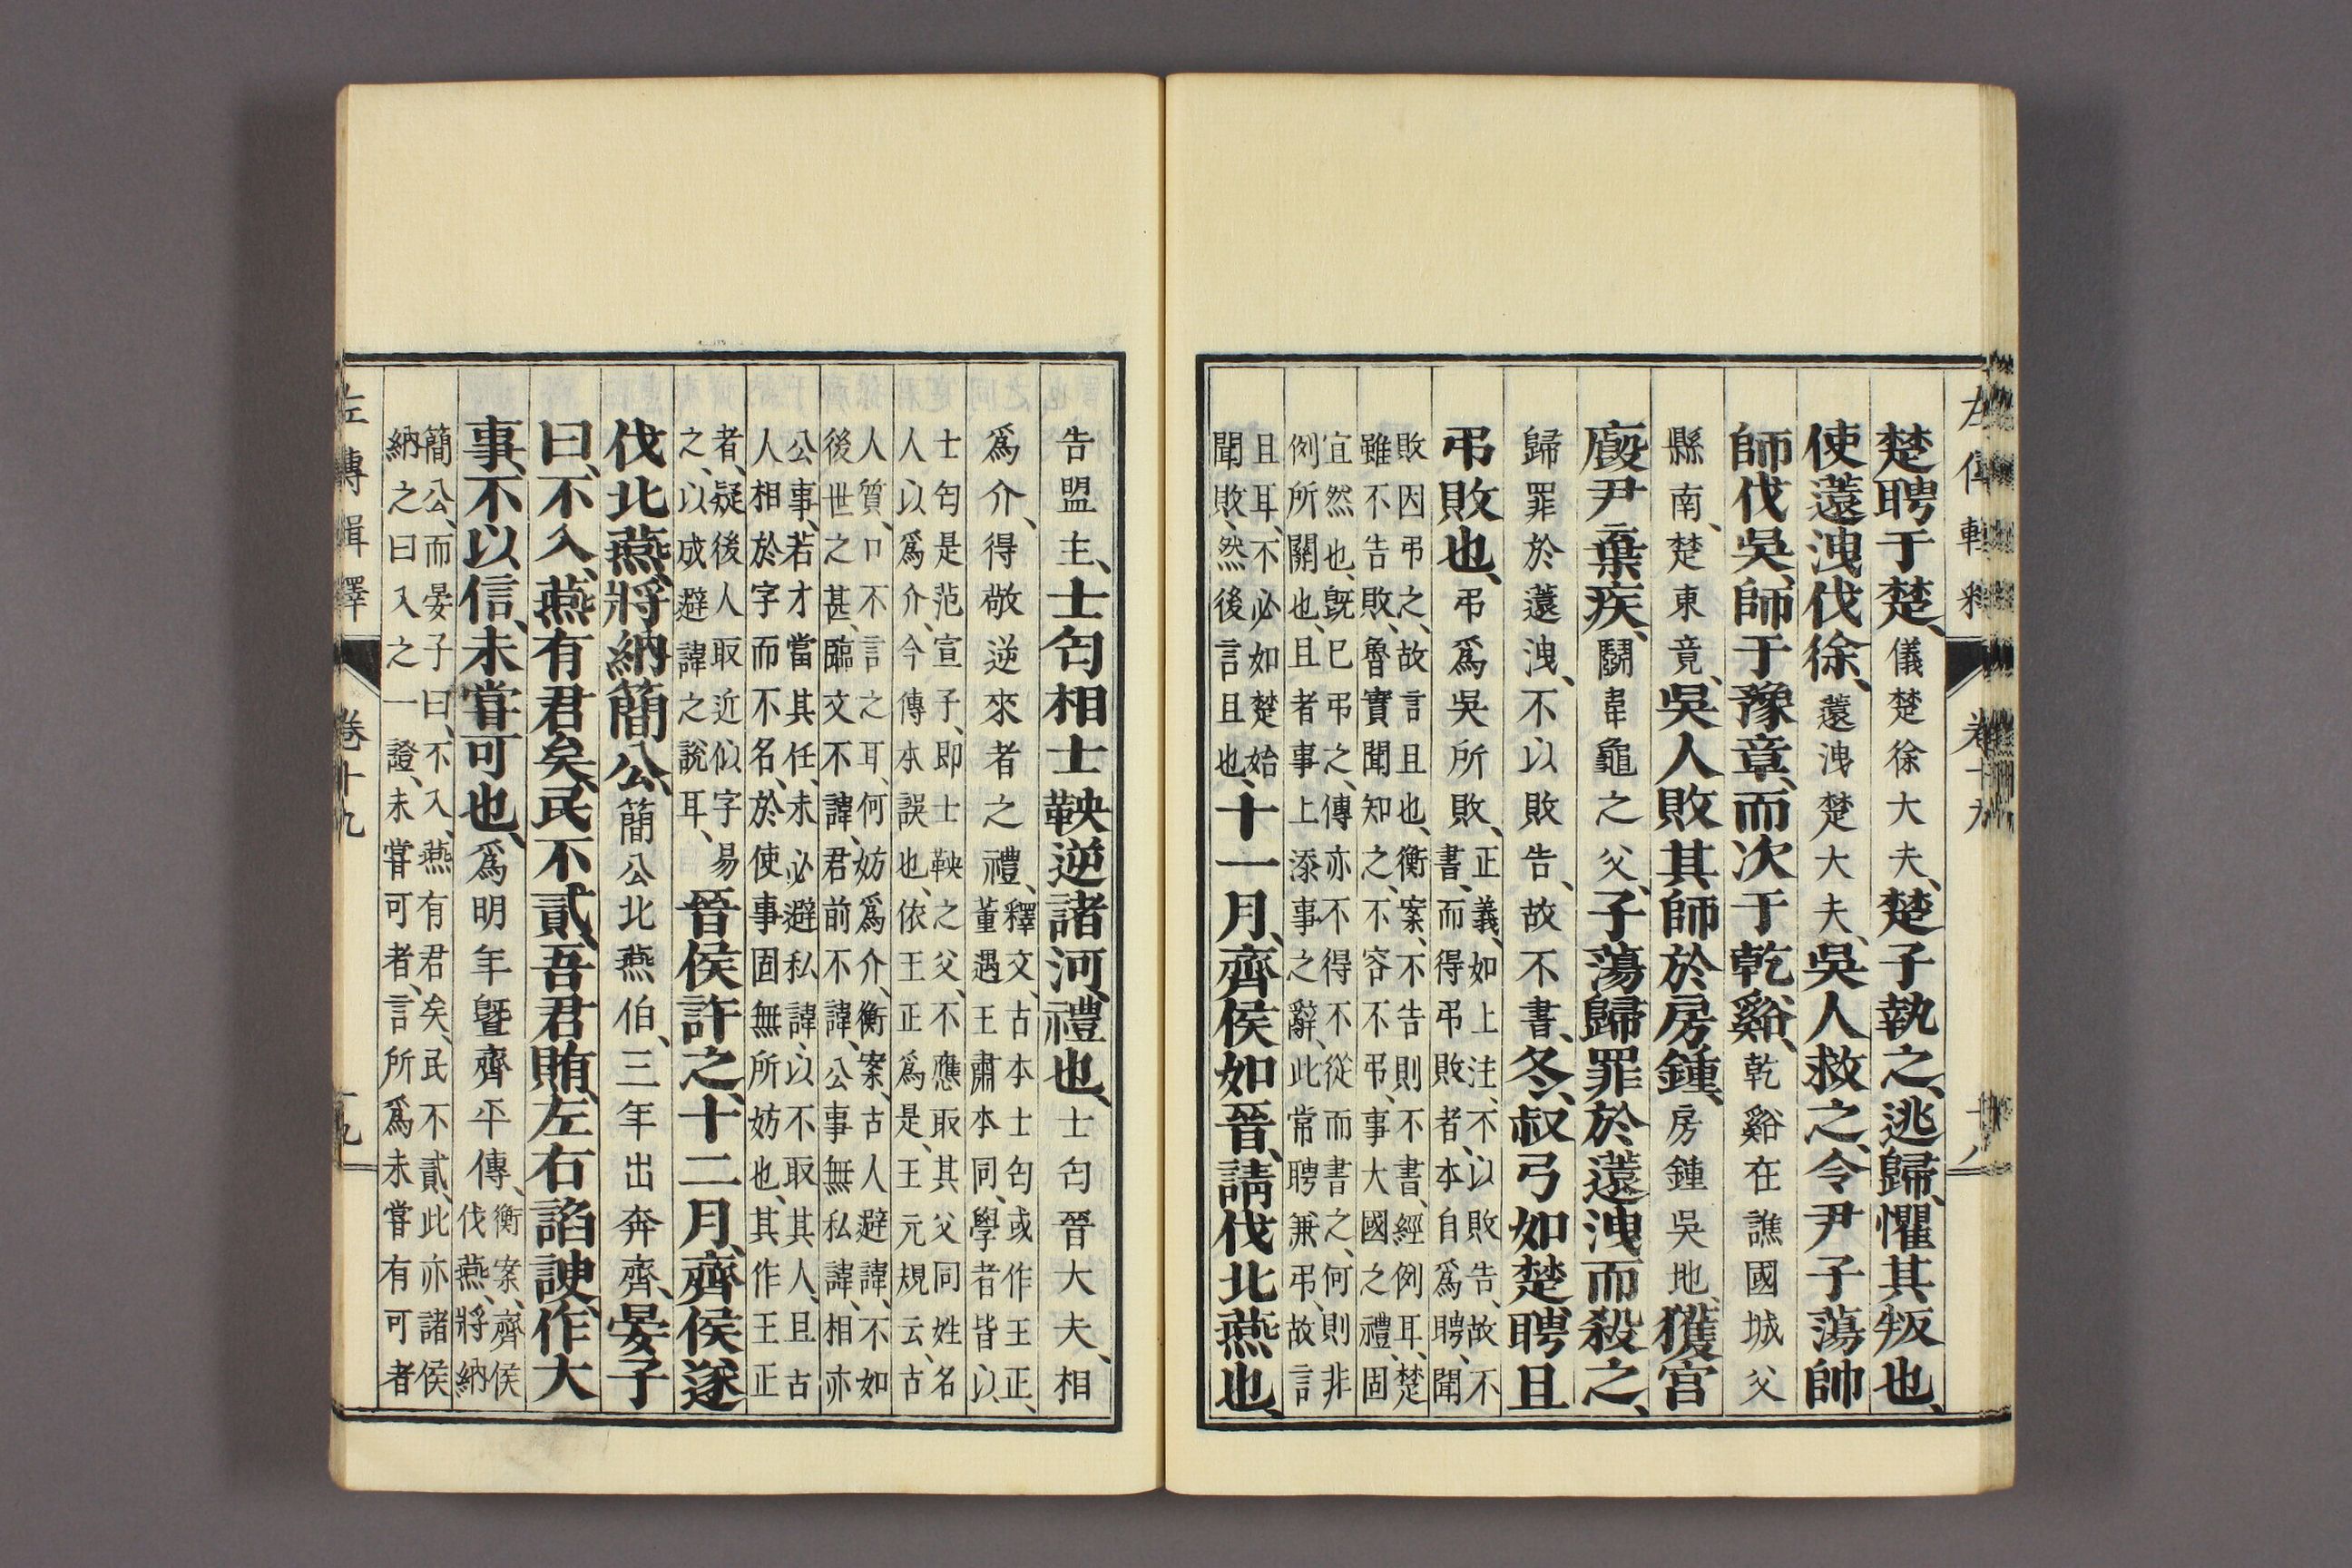 楚聘于楚、儀楚徐大夫、楚子執之、逃歸、懼其叛也、
使薳洩伐徐、薳洩楚大夫、吳人救之、令尹子蕩帥
師伐吳、師于豫章、而次于乾谿、乾谿在譙國城父
縣南、楚東竟、吳人敗其師於房鍾、房鍾吳地、獲宮
廄尹棄疾、鬬韋龜之父、子蕩歸罪於薳洩而殺之、
歸罪於薳洩、不以敗告、故不書、冬、叔弓如楚聘且
弔敗也、弔爲吳所敗、正義、如上注、不以敗告、故不
書、而得弔敗者、本自爲聘、聞
敗因弔之、故言且也、衡案、不告則不書、經例耳、楚
雖不告敗、魯實聞知之、不容不弔、事大國之禮、固
宜然也、既已弔之、傳亦不得不從而書之、何則非
例所關也、且者事上添事之辭、此常聘兼弔、故言
且耳、不必如楚始
聞敗、然後言且也、十一月、齊侯如晉、請伐北燕也、
告盟主、士匄相士鞅逆諸河、禮也、士匄晉大夫、相
爲介、得敬逆來者之禮、釋文、古本士匄或作王正、
董遇王肅本同、學者皆以
士匄是范宣子、即士鞅之父、不應取其父同姓名
人以爲介、今傳本誤也、依王正爲是、王元規云、古
人質、口不言之耳、何妨爲介、衡案、古人避諱、不如
後世之甚、臨文不諱、君前不諱、公事無私諱、相亦
公事、若才當其任、未必避私諱、以不取其人、且古
人相於字而不名、於使事固無所妨也、其作王正
者、疑後人取近似字易
之、以成避諱之說耳、晉侯許之、十二月、齊侯遂
伐北燕、將納簡公、簡公北燕伯、三年出奔齊、晏子
曰、不入、燕有君矣、民不貳、吾君賄、左右諂諛、作大
事、不以信、未嘗可也、爲明年曁齊平傳、衡案、齊侯
伐燕、將納
簡公、而晏子曰、不入、燕有君矣、民不貳、此亦諸侯
納之曰入之一證、未嘗可者、言所爲未嘗有可者
左傳輯釋 卷十九